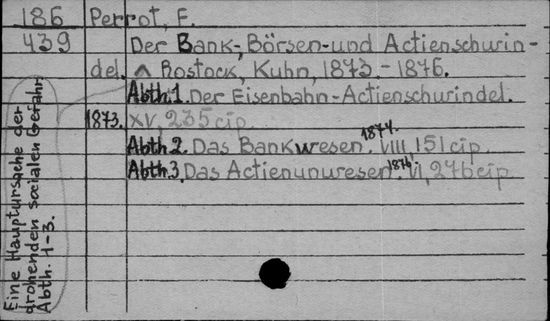 186 Perrot, F.
439 Der Bank-, Börsen- und Actienschwin-
del. ^ Rostock, Kuhn, 1873.-1876.
Abth.1. Der Eisenbahn-Actienschwindel.
1873. XV, 235 cip.
Abth.2. Das Bankwesen. 1874. VIII 151 cip.
Abth.3. Das Actienunwesen. 1876. VI, 276 cip
Eine Hauptursache der
drohenden socialen Gefahr.
Abth. 1-3.